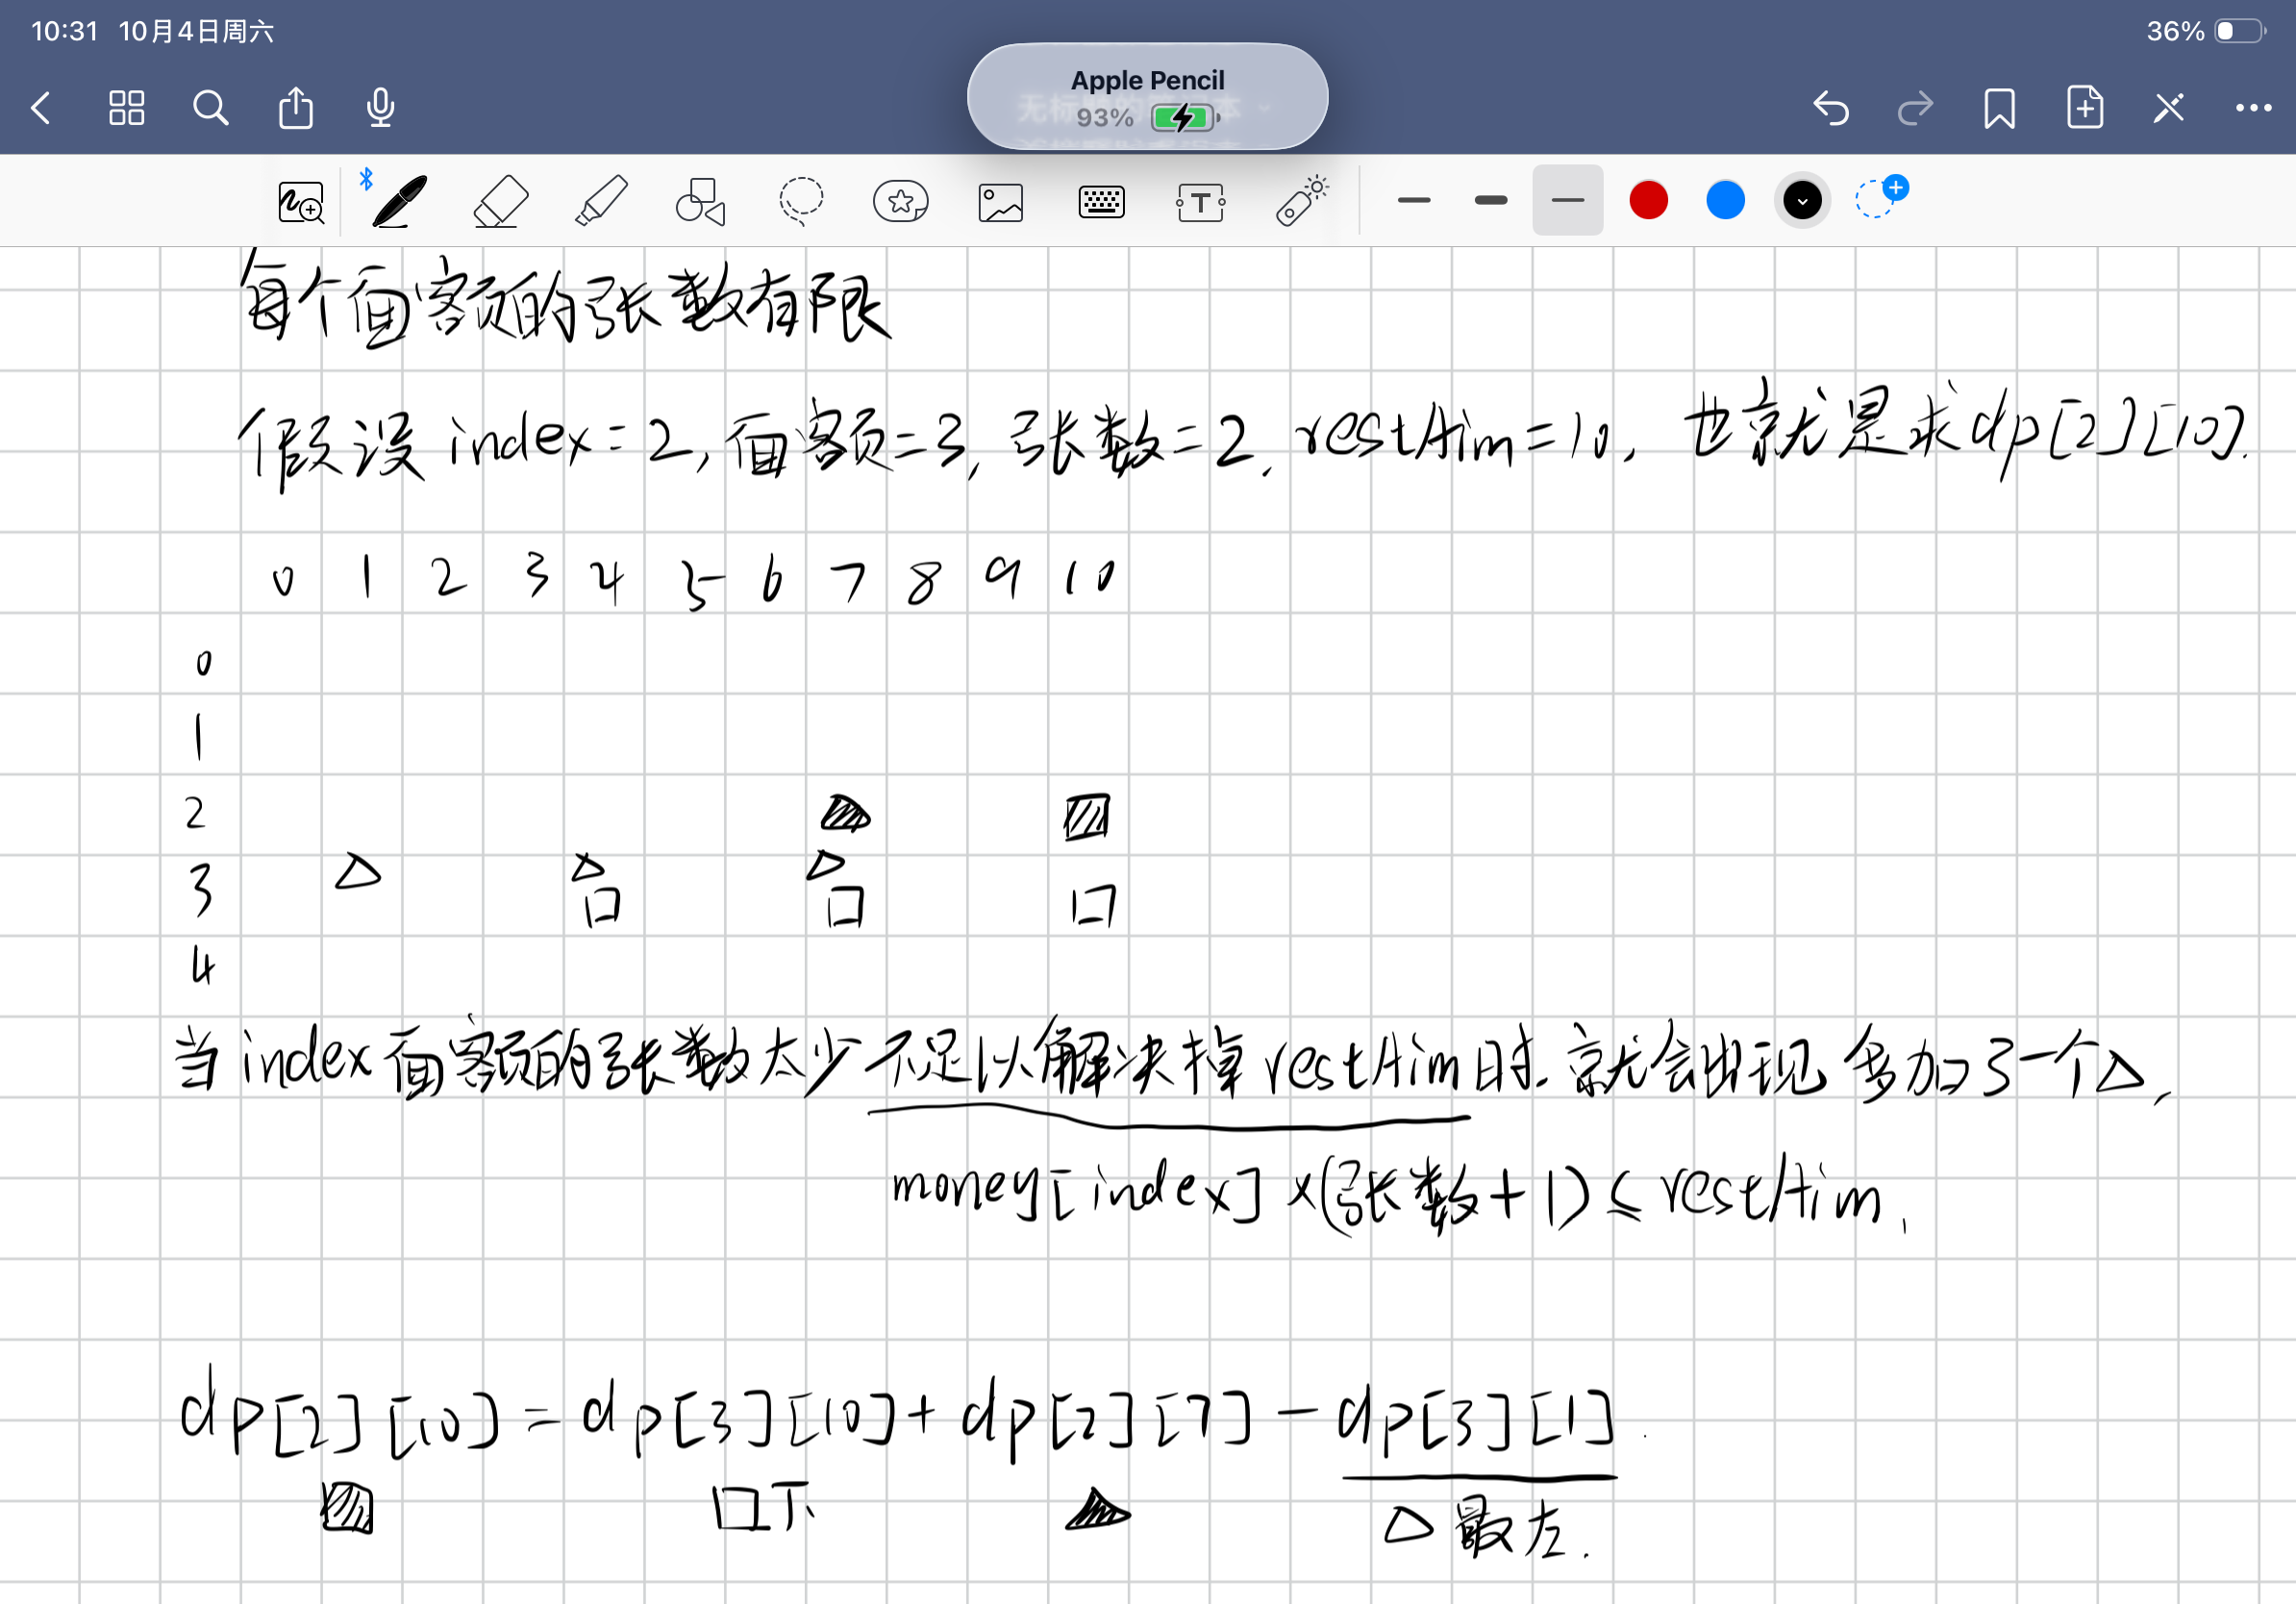 10:31 10月4日周六
36%
Apple Pencil
93%
每个面额的张数有限
假设index=2,面额=3,张数=2,restAim=10,也就是求dp[2][10].
0 1 2 3 4 5 6 7 8 9 10
0
1
2
3
4
当index面额的张数太少不足以解决掉restAim时,就会出现多加了一个△,
money[index]×(张数+1)≤restAim,
dp[2][10]=dp[3][10]+dp[2][7]-dp[3][1].
下
△最左.